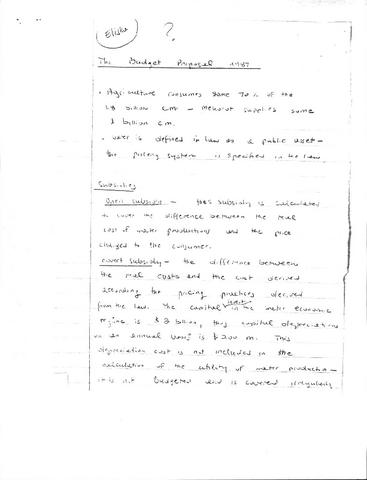 Elisha
?
The Budget Proposal 1987
• Agriculture consumes some 70% of the
1.8 billion c.m. - Mekorot supplies some
1 billion c.m.
• water is defined in law as a public asset -
the pricing system is specified in the law
Subsidies
Open subsidy - this subsidy is calculated
to cover the difference between the real
cost of water production and the price
charged to the consumer.
covert subsidy - the difference between
the real costs and the cost derived
according to pricing practices derived
from the law. The capital in the water economy
is $2 billion, thus capital depreciation
on an annual basis is $200 m. This
depreciation cost is not included in the
calculation of the utility of water production -
it is not budgeted and is covered irregularly